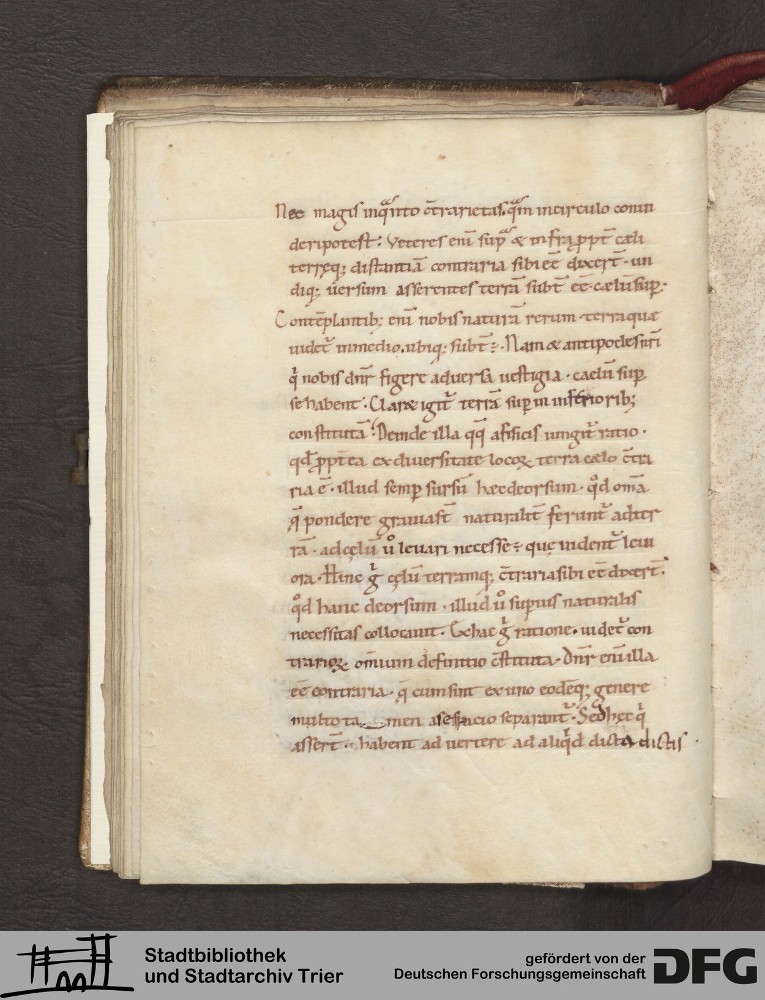 Nec magis inq̄nto c̄trarietas. q̄m in circulo conui
deri potest: Veteres eni sup̄ & infra ꝓpt̄ cæli
terręq; distantiā contraria sibi eē dixert̄ · un
diq; uersum asserentes terrā subt̄ eē. cælū sup̄·
Contēplantib; eni nobis naturā rerum · terra quæ
uidet̄ in medio. ubiq; subt̄ ÷ · Nam & antipodes
q̄ nobis dn̄r figere aduersa uestigia · caelū sup̄
se habent · Claræ igit̄ terrā sup̄ in inferiorib;
constitutā · Deinde illa qq̄ afisicis iungit̄ ratio ·
qd̄ ꝓpt ea ex diuersitate locoꝝ terra cælo c̄tra
ria ē · illud semp̄ sursū hæc deorsum · qd̄ omā
q̄ pondere grauiast̄ naturalit̄ ferunt̄ ad ter
rā · ad cęlū ů leuari necesse ÷ quę uident̄ leui
ora · Hinc ḡ cęlū terramq; c̄traria sibi eē dixert̄ ·
qd̄ hanc deorsum · illud ů superius naturalis
necessitas collocauit · Ex hac ḡ ratione · uidet̄ con
trarioꝝ omnium definitio c̄stituta · Dn̄r eni illa
eē contraria · q̄ cum sint ex uno eodēq; genere
multo ta men ase spacio separant̄ · Sed hęc q̄
assert̄ · habent ad uertere ad aliq̄d dicta dictis ·
Stadtbibliothek
und Stadtarchiv Trier
gefördert von der
Deutschen Forschungsgemeinschaft
DFG